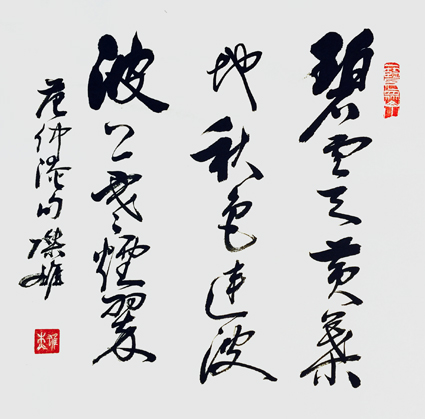 碧雲天黄葉
地秋色連波
波上寒煙翠
范仲淹句雄